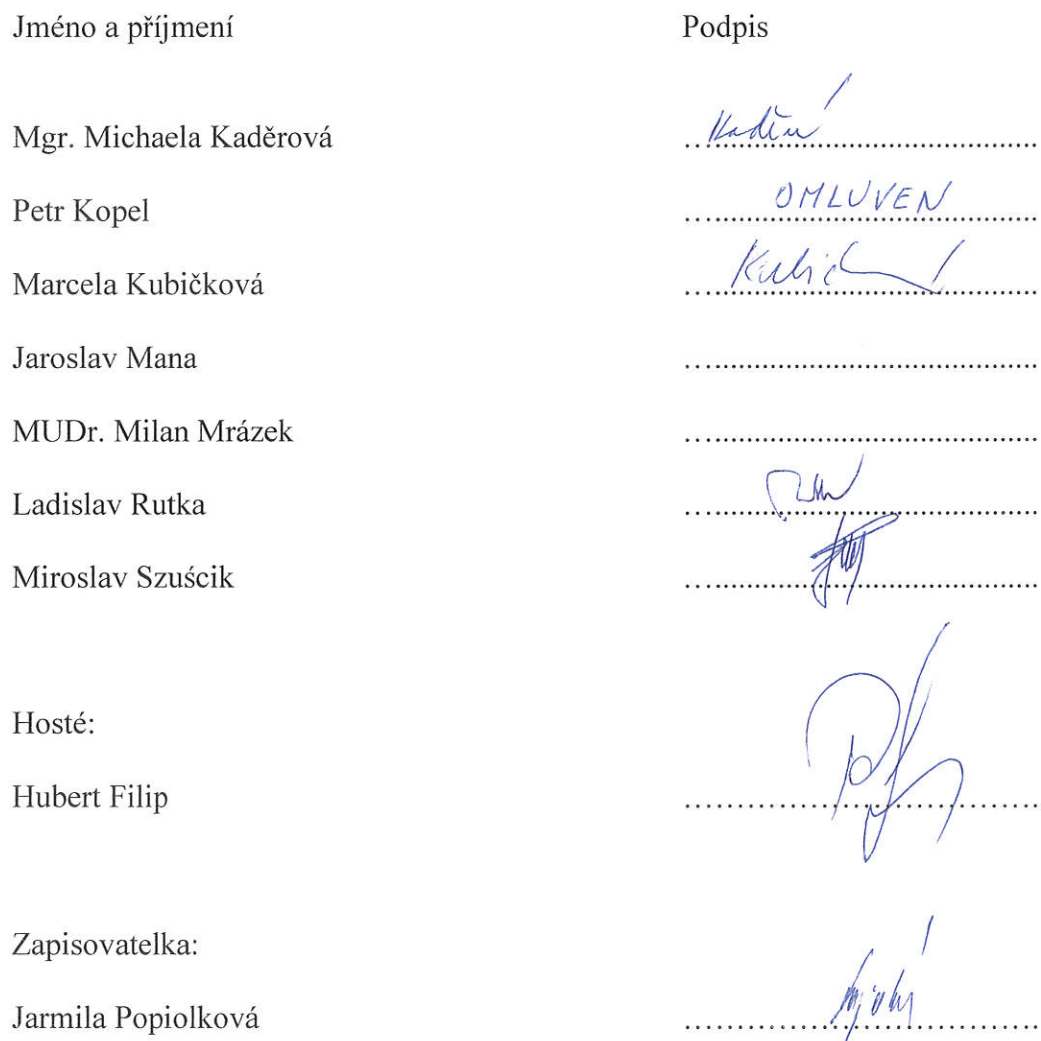 Jméno a příjmení Podpis
Mgr. Michaela Kaděrová ........................................
Petr Kopel OMLUVEN ........................................
Marcela Kubičková ........................................
Jaroslav Mana ........................................
MUDr. Milan Mrázek ........................................
Ladislav Rutka ........................................
Miroslav Szuścik ........................................
Hosté:
Hubert Filip ........................................
Zapisovatelka:
Jarmila Popiolková ........................................